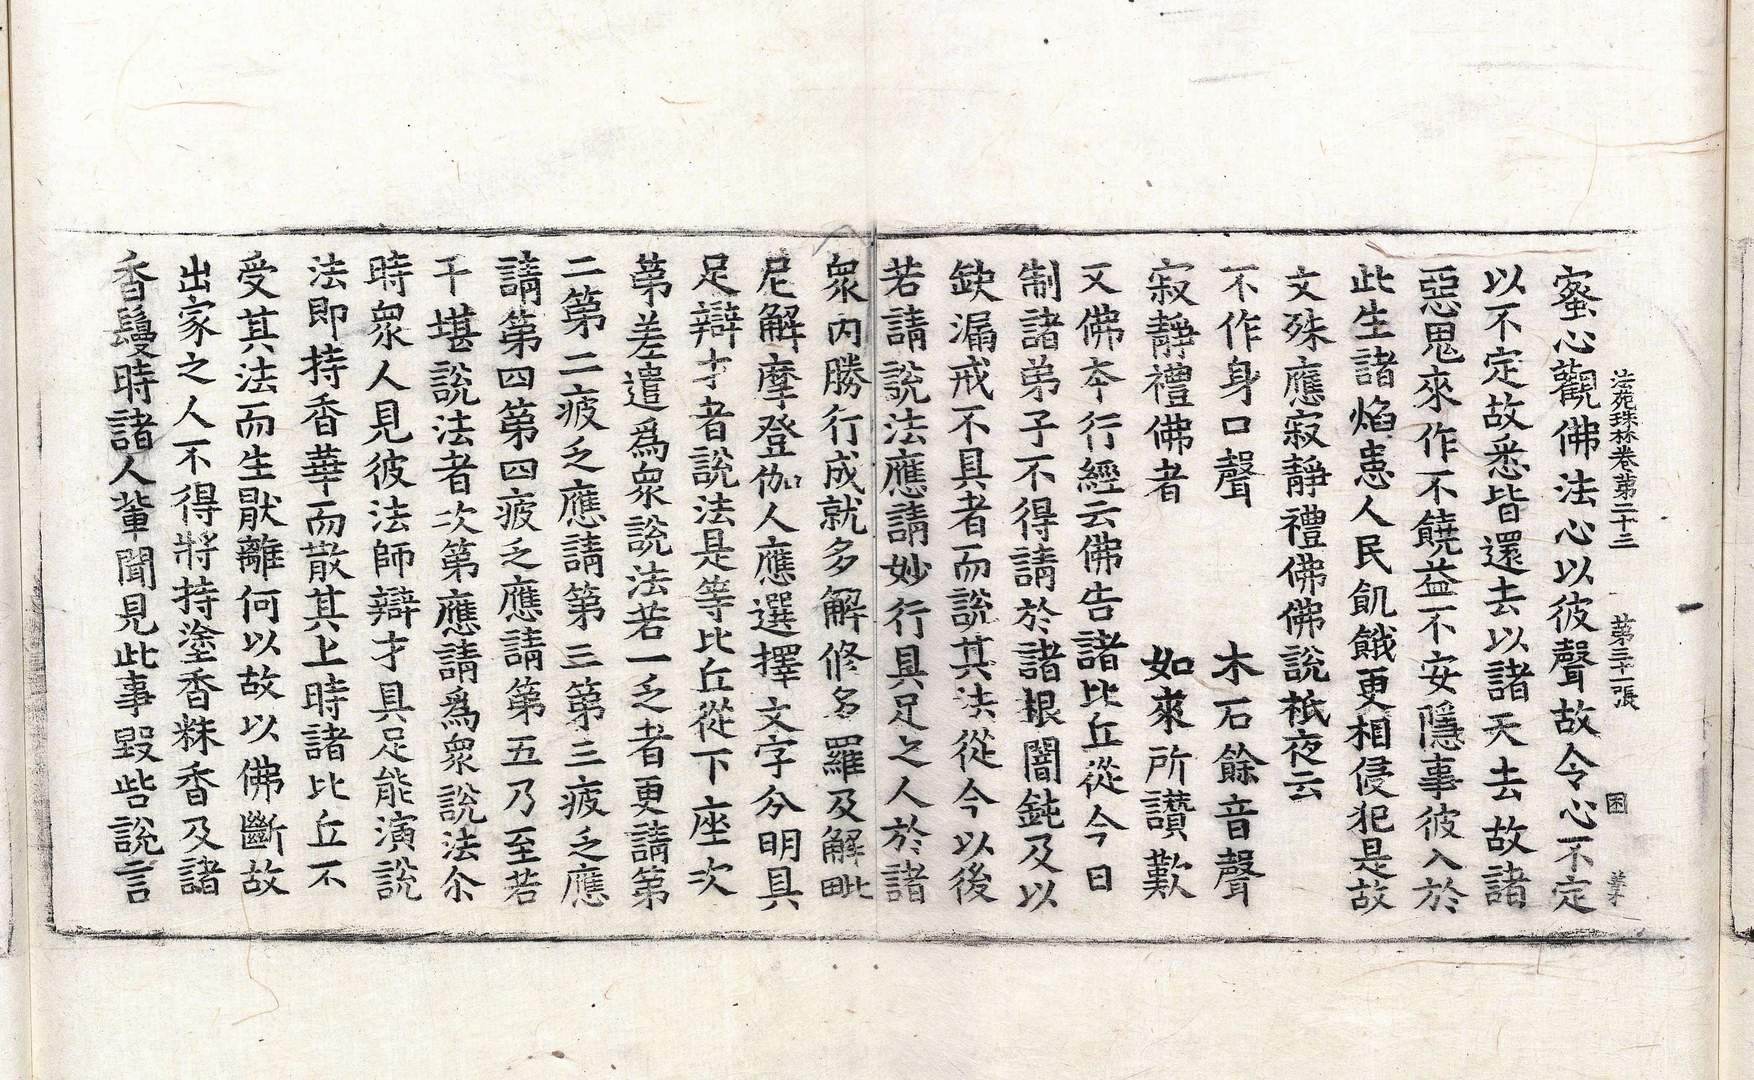 法苑珠林卷第二十三 第三十一張 困
蜜心觀佛法心以彼聲故令心不定
以不定故悉皆還去以諸天去故諸
惡鬼來作不饒益不安隱事彼入於
此生諸焰患人民飢餓更相侵犯是故
文殊應寂靜禮佛佛說祇夜云
不作身口聲 木石餘音聲
寂靜禮佛者 如來所讚歎
又佛夲行經云佛告諸比丘從今日
制諸弟子不得請於諸根闇鈍及以
缺漏戒不具者而說其法從今以後
若請說法應請妙行具足之人於諸
衆內勝行成就多解修多羅及解毗
尼解摩登伽人應選擇文字分明具
足辯才者說法是等比丘從下座次
第差遣爲衆說法若一乏者更請第
二第二疲乏應請第三第三疲乏應
請第四第四疲乏應請第五乃至若
干堪說法者次第應請爲衆說法尒
時衆人見彼法師辯才具足能演說
法即持香華而散其上時諸比丘不
受其法而生猒離何以故以佛斷故
出家之人不得將持塗香粖香及諸
香鬘時諸人輩聞見此事毀呰說言